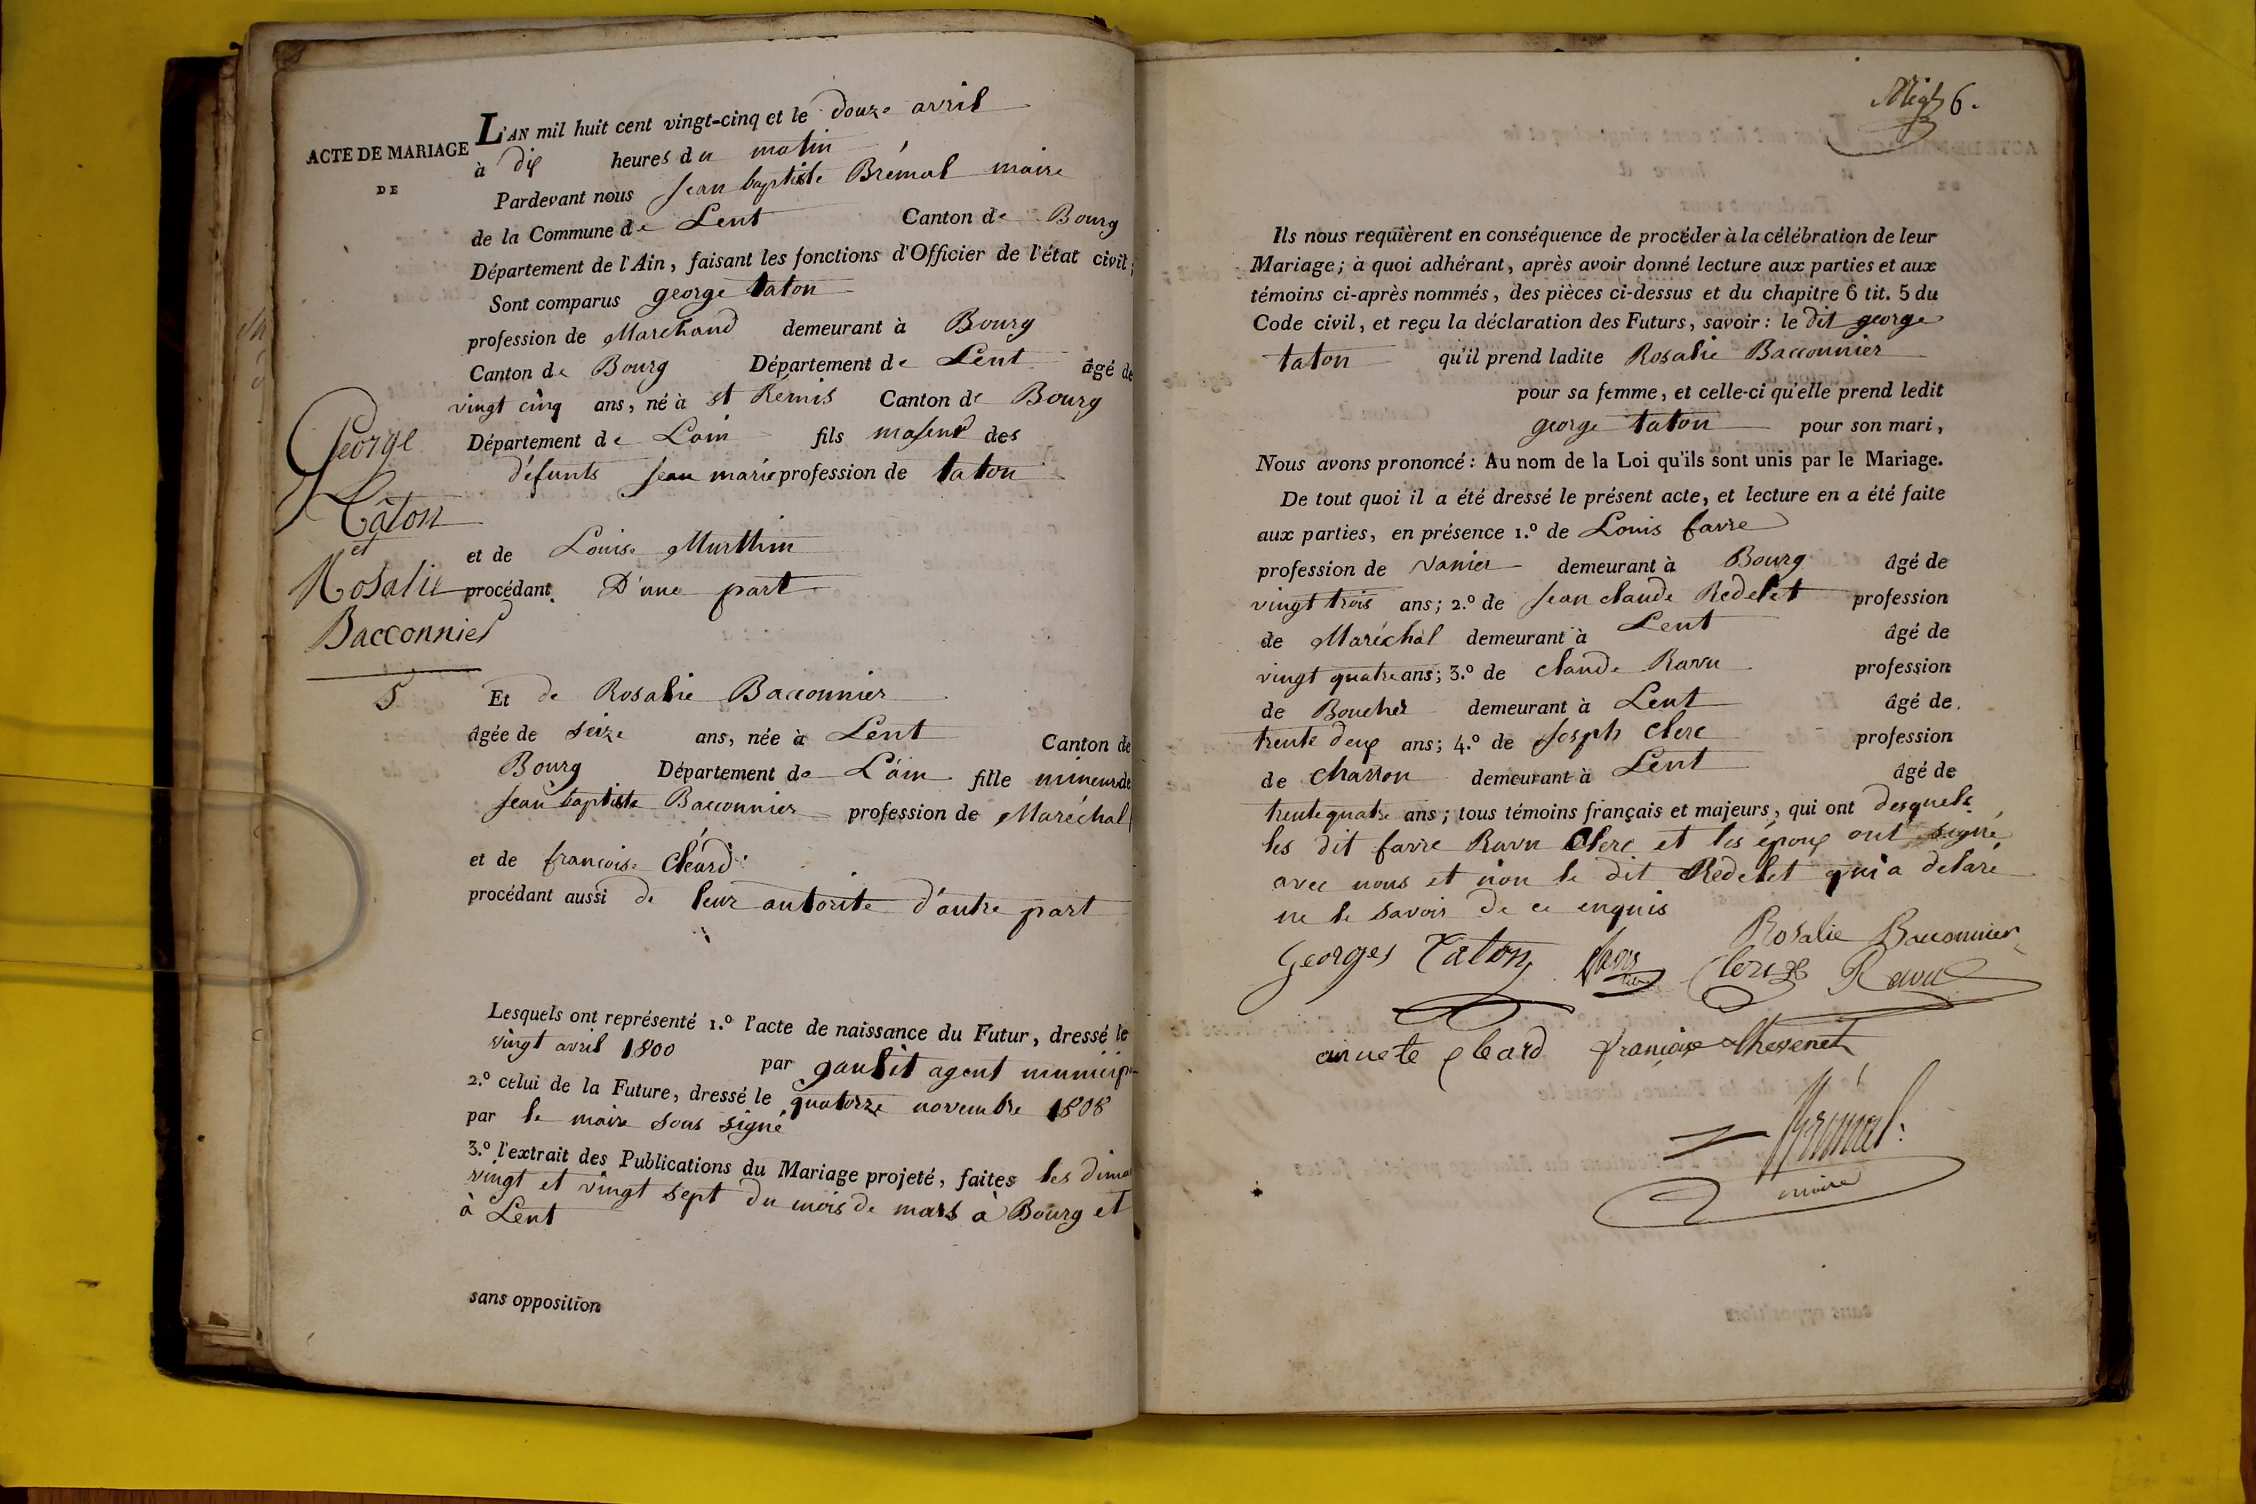 ACTE DE MARIAGE
DE
George
Tâton
et
Rosalie
Bacconnier
5
L'AN mil huit cent vingt-cinq et le douze avril
à dix heures du matin
Pardevant nous Jean baptiste Brémal maire
de la Commune de Lent Canton de Bourg
Département de l'Ain, faisant les fonctions d'Officier de l'état civil;
Sont comparus george taton
profession de Marchand demeurant à Bourg
Canton de Bourg Département de Lent âgé de
vingt cinq ans, né à st Rémis Canton de Bourg
Département de Lain fils majeur des
défunts Jean marie profession de taton
et de Louise Murthin
procédant D'une part
Et de Rosalie Bacconnier
âgée de seize ans, née à Lent Canton de
Bourg Département de L'ain fille mineure de
Jean baptiste Bacconnier profession de Maréchal
et de françoise Cléard
procédant aussi de leur autorite d'autre part
Lesquels ont représenté 1.º l'acte de naissance du Futur, dressé le
vingt avril 1800 par gaulit agent municip
2.º celui de la Future, dressé le quatorze novembre 1808
par le maire sous signé
3.º l'extrait des Publications du Mariage projeté, faites les dima
vingt et vingt sept du mois de mars à Bourg et
à Lent
sans opposition
6.
Ils nous requièrent en conséquence de procéder à la célébration de leur
Mariage; à quoi adhérant, après avoir donné lecture aux parties et aux
témoins ci-après nommés, des pièces ci-dessus et du chapitre 6 tit. 5 du
Code civil, et reçu la déclaration des Futurs, savoir: le dit george
taton qu'il prend ladite Rosalie Bacconnier
pour sa femme, et celle-ci qu'elle prend ledit
george taton pour son mari,
Nous avons prononcé: Au nom de la Loi qu'ils sont unis par le Mariage.
De tout quoi il a été dressé le présent acte, et lecture en a été faite
aux parties, en présence 1.º de Louis favre
profession de Vanier demeurant à Bourg âgé de
vingt trois ans; 2.º de Jean claude Redelet profession
de Maréchal demeurant à Lent âgé de
vingt quatre ans; 3.º de claude Ravu profession
de Boucher demeurant à Lent âgé de
trente deux ans; 4.º de Joseph Clerc profession
de charron demeurant à Lent âgé de
trente quatre ans; tous témoins français et majeurs, qui ont desquels
les dit favre Ravu Clerc et les époux ont signé
avec nous et non le dit Redelet qui a delaré
ne le savoir de ce enquis
Rosalie Bacconnier
Georges Taton favre Clerc Ravu
annete cleard françoise Thevenet
Brémal
maire